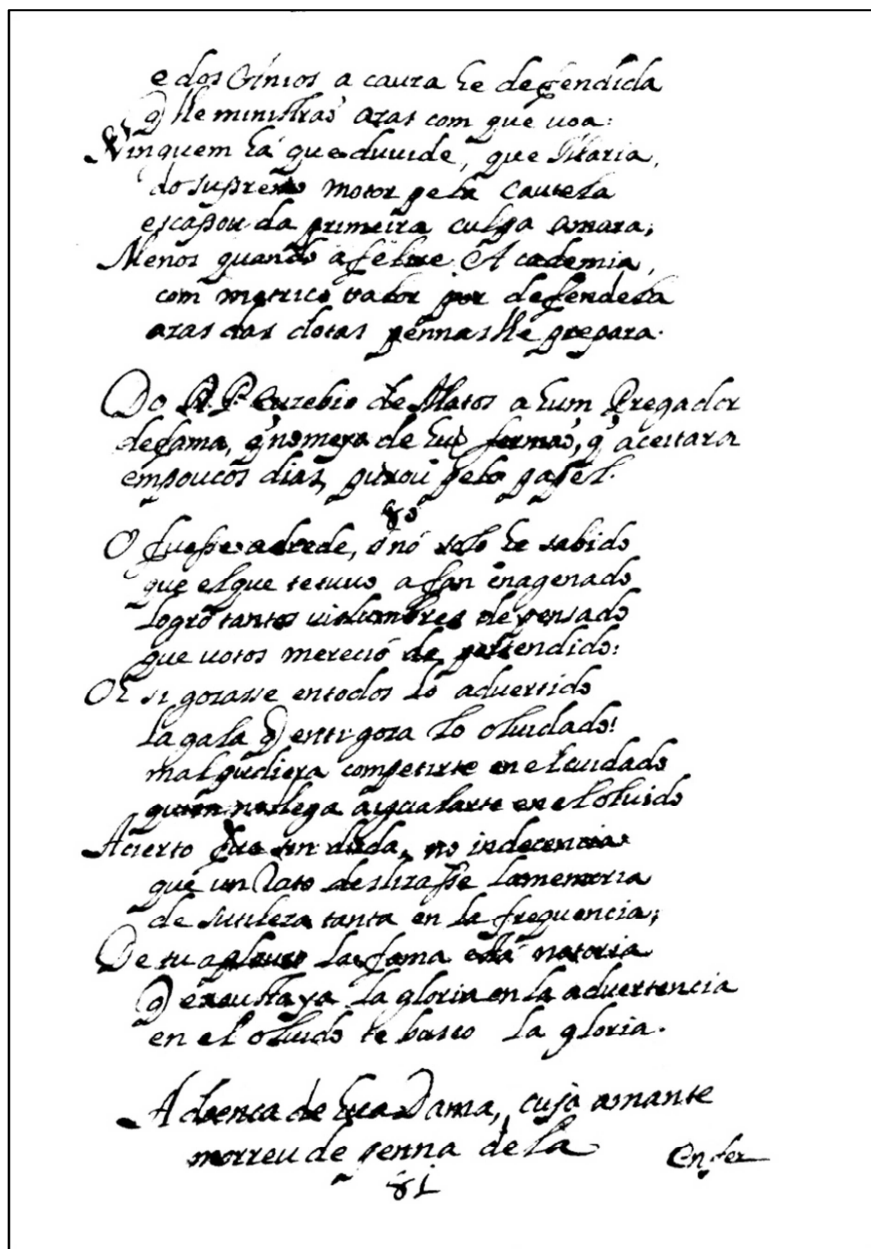 e dos Genios a causa he defendida
q̃ lhe ministraõ azas com que uoa:
Ninguem há que duuide, que Maria,
do supremo motor pela cautela
escapou da primeira culpa amara;
Menos quando a felice Academia,
com metrico valor por defendela
azas das doctas pennas lhe prepara.
Do R. P. Euzebio de Matos a hum Pregador
de fama, q̃ no meyo de hũ sermaõ, q̃ aceitara
em poucos dias, puxou pelo papel.
80
O fuesse adrede, ó nó solo he sabido
que el que te tuuo a fan enagenado
logro tantos uislumbres de pensado
que uotos mereció de pretendido:
Oh si gozasse en todos lo aduertido
la gala q̃ en ti goza lo oluidado!
mal pudiera competirte en el cuidado
quien no llega a igualarte en el oluido
Acierto fue sin duda, no indecencia
que un rato deslizasse la memoria
de sutileza tanta en la frequencia;
De tu aplauso la fama está notoria
q̃ exausta ya la gloria en la aduertencia
en el oluido te busco la gloria.
A doença de hũa Dama, cujo amante
morreu de penna dela
Enfer
81